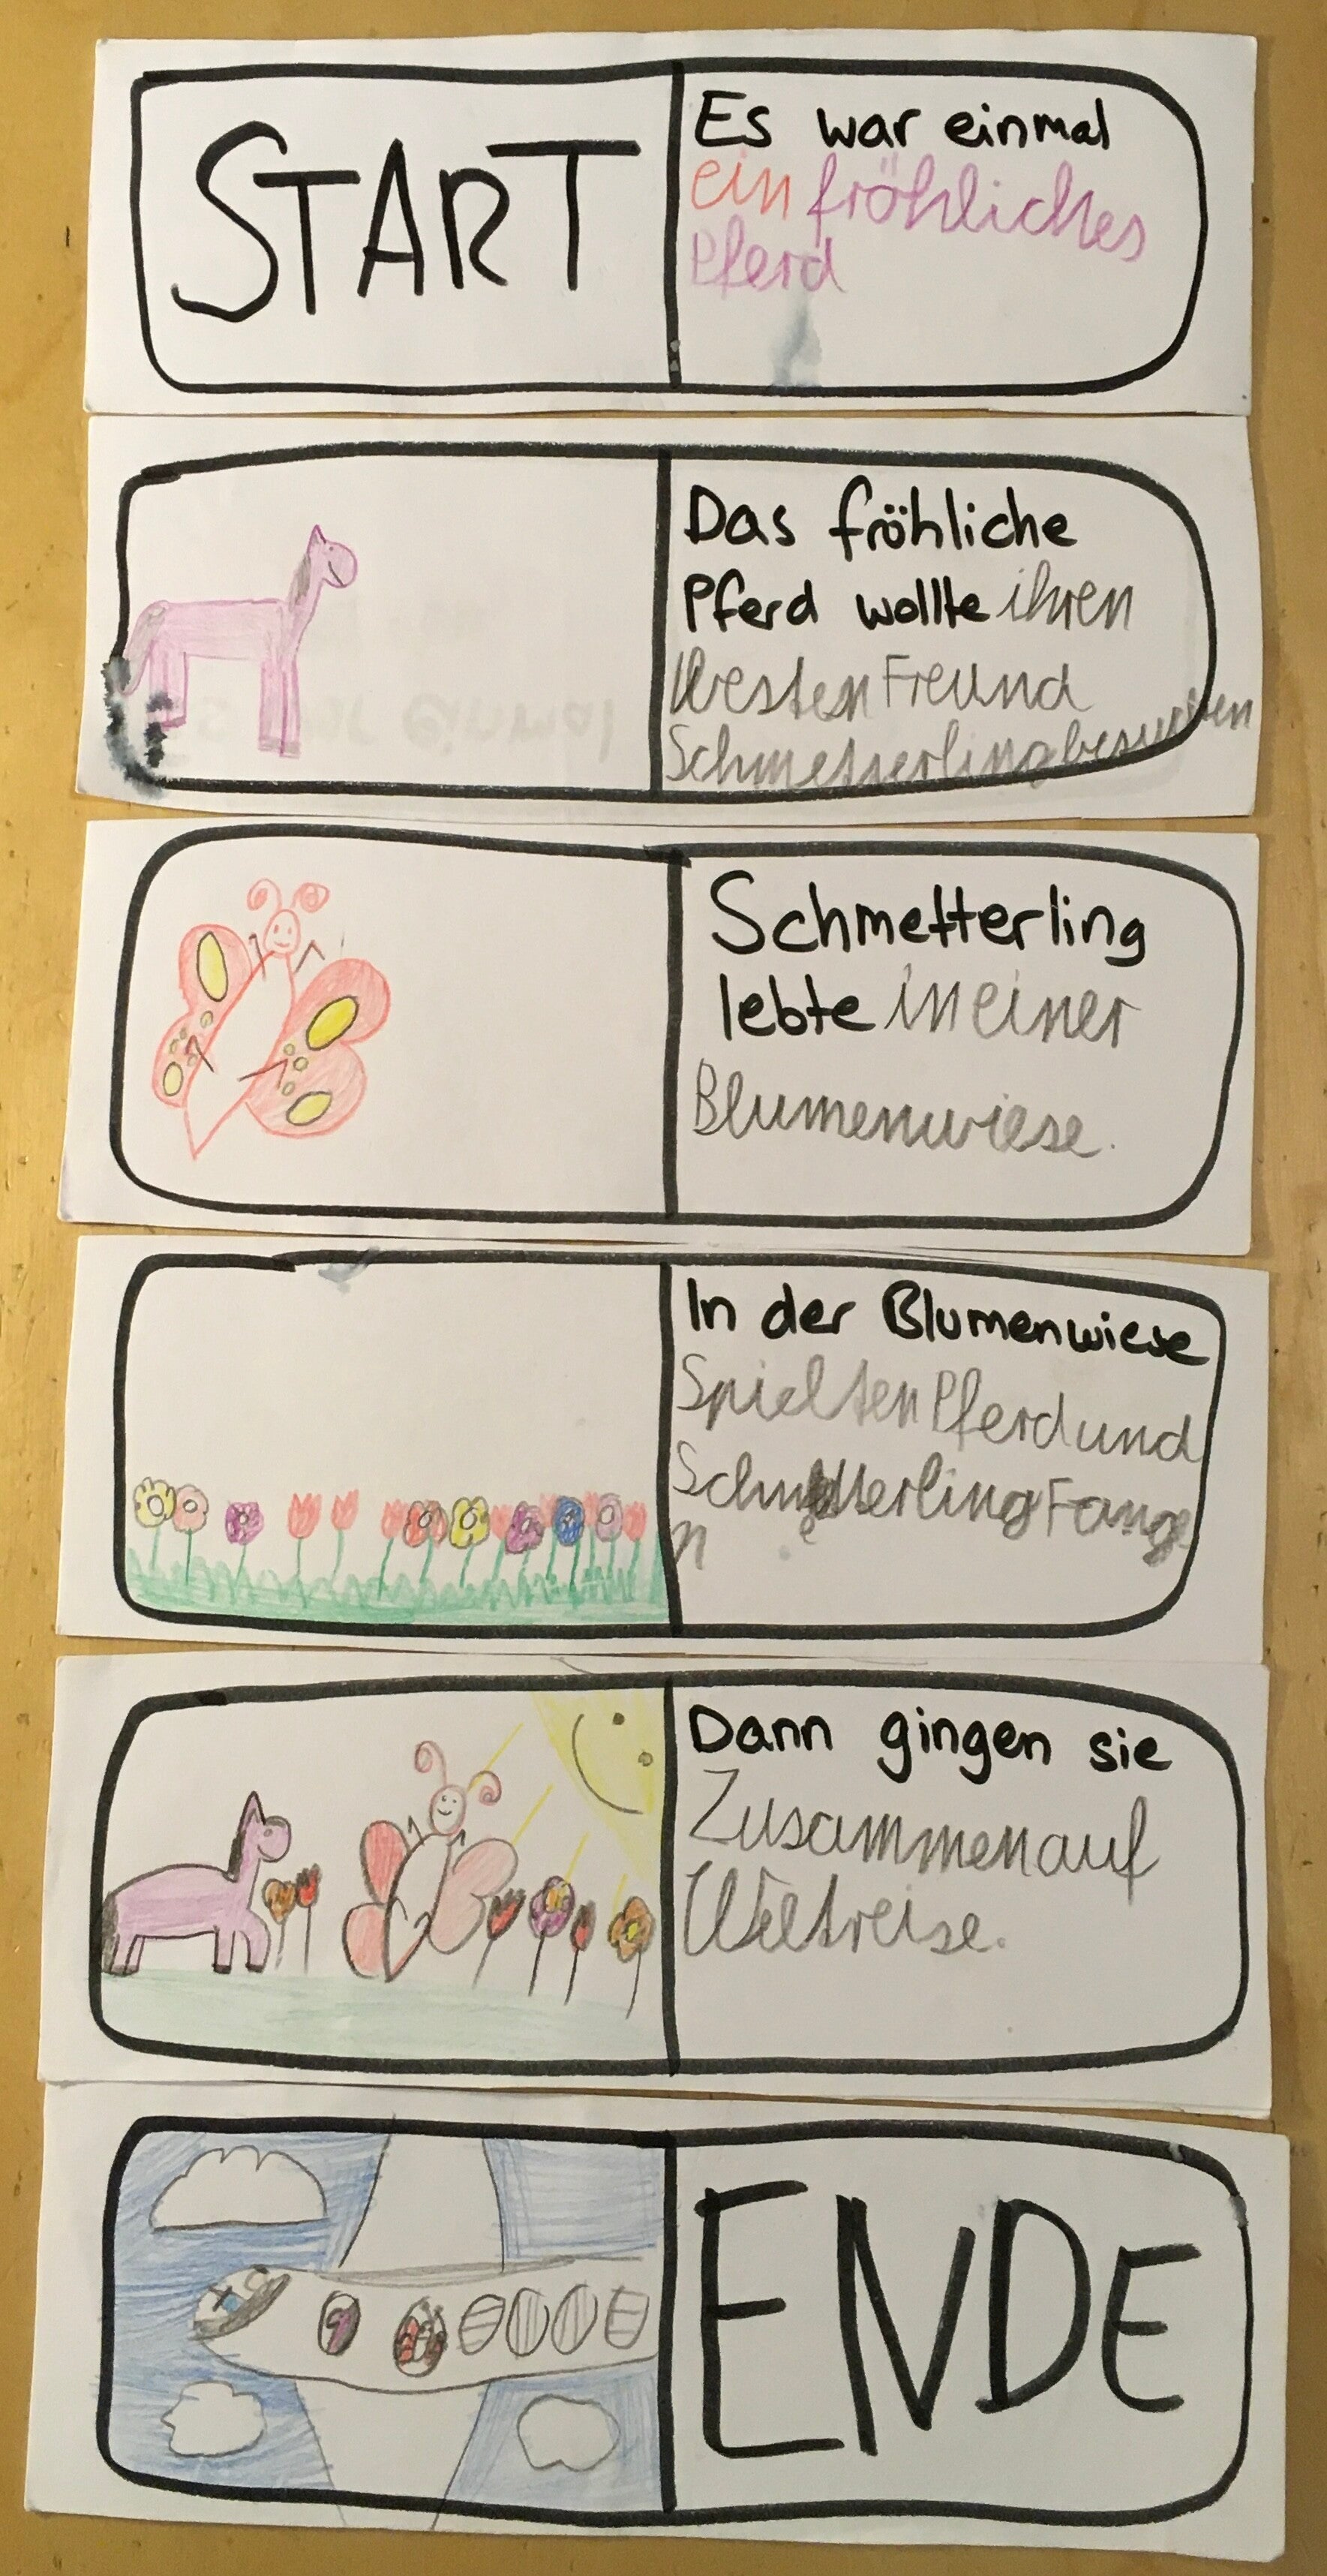 START
Es war einmal
ein fröhliches
Pferd
Das fröhliche
Pferd wollte ihren
besten Freund
Schmetterling besuchen
Schmetterling
lebte in einer
Blumenwiese.
In der Blumenwiese
Spielten Pferd und
Schmetterling Fange
n
Dann gingen sie
Zusammen auf
Weltreise.
ENDE